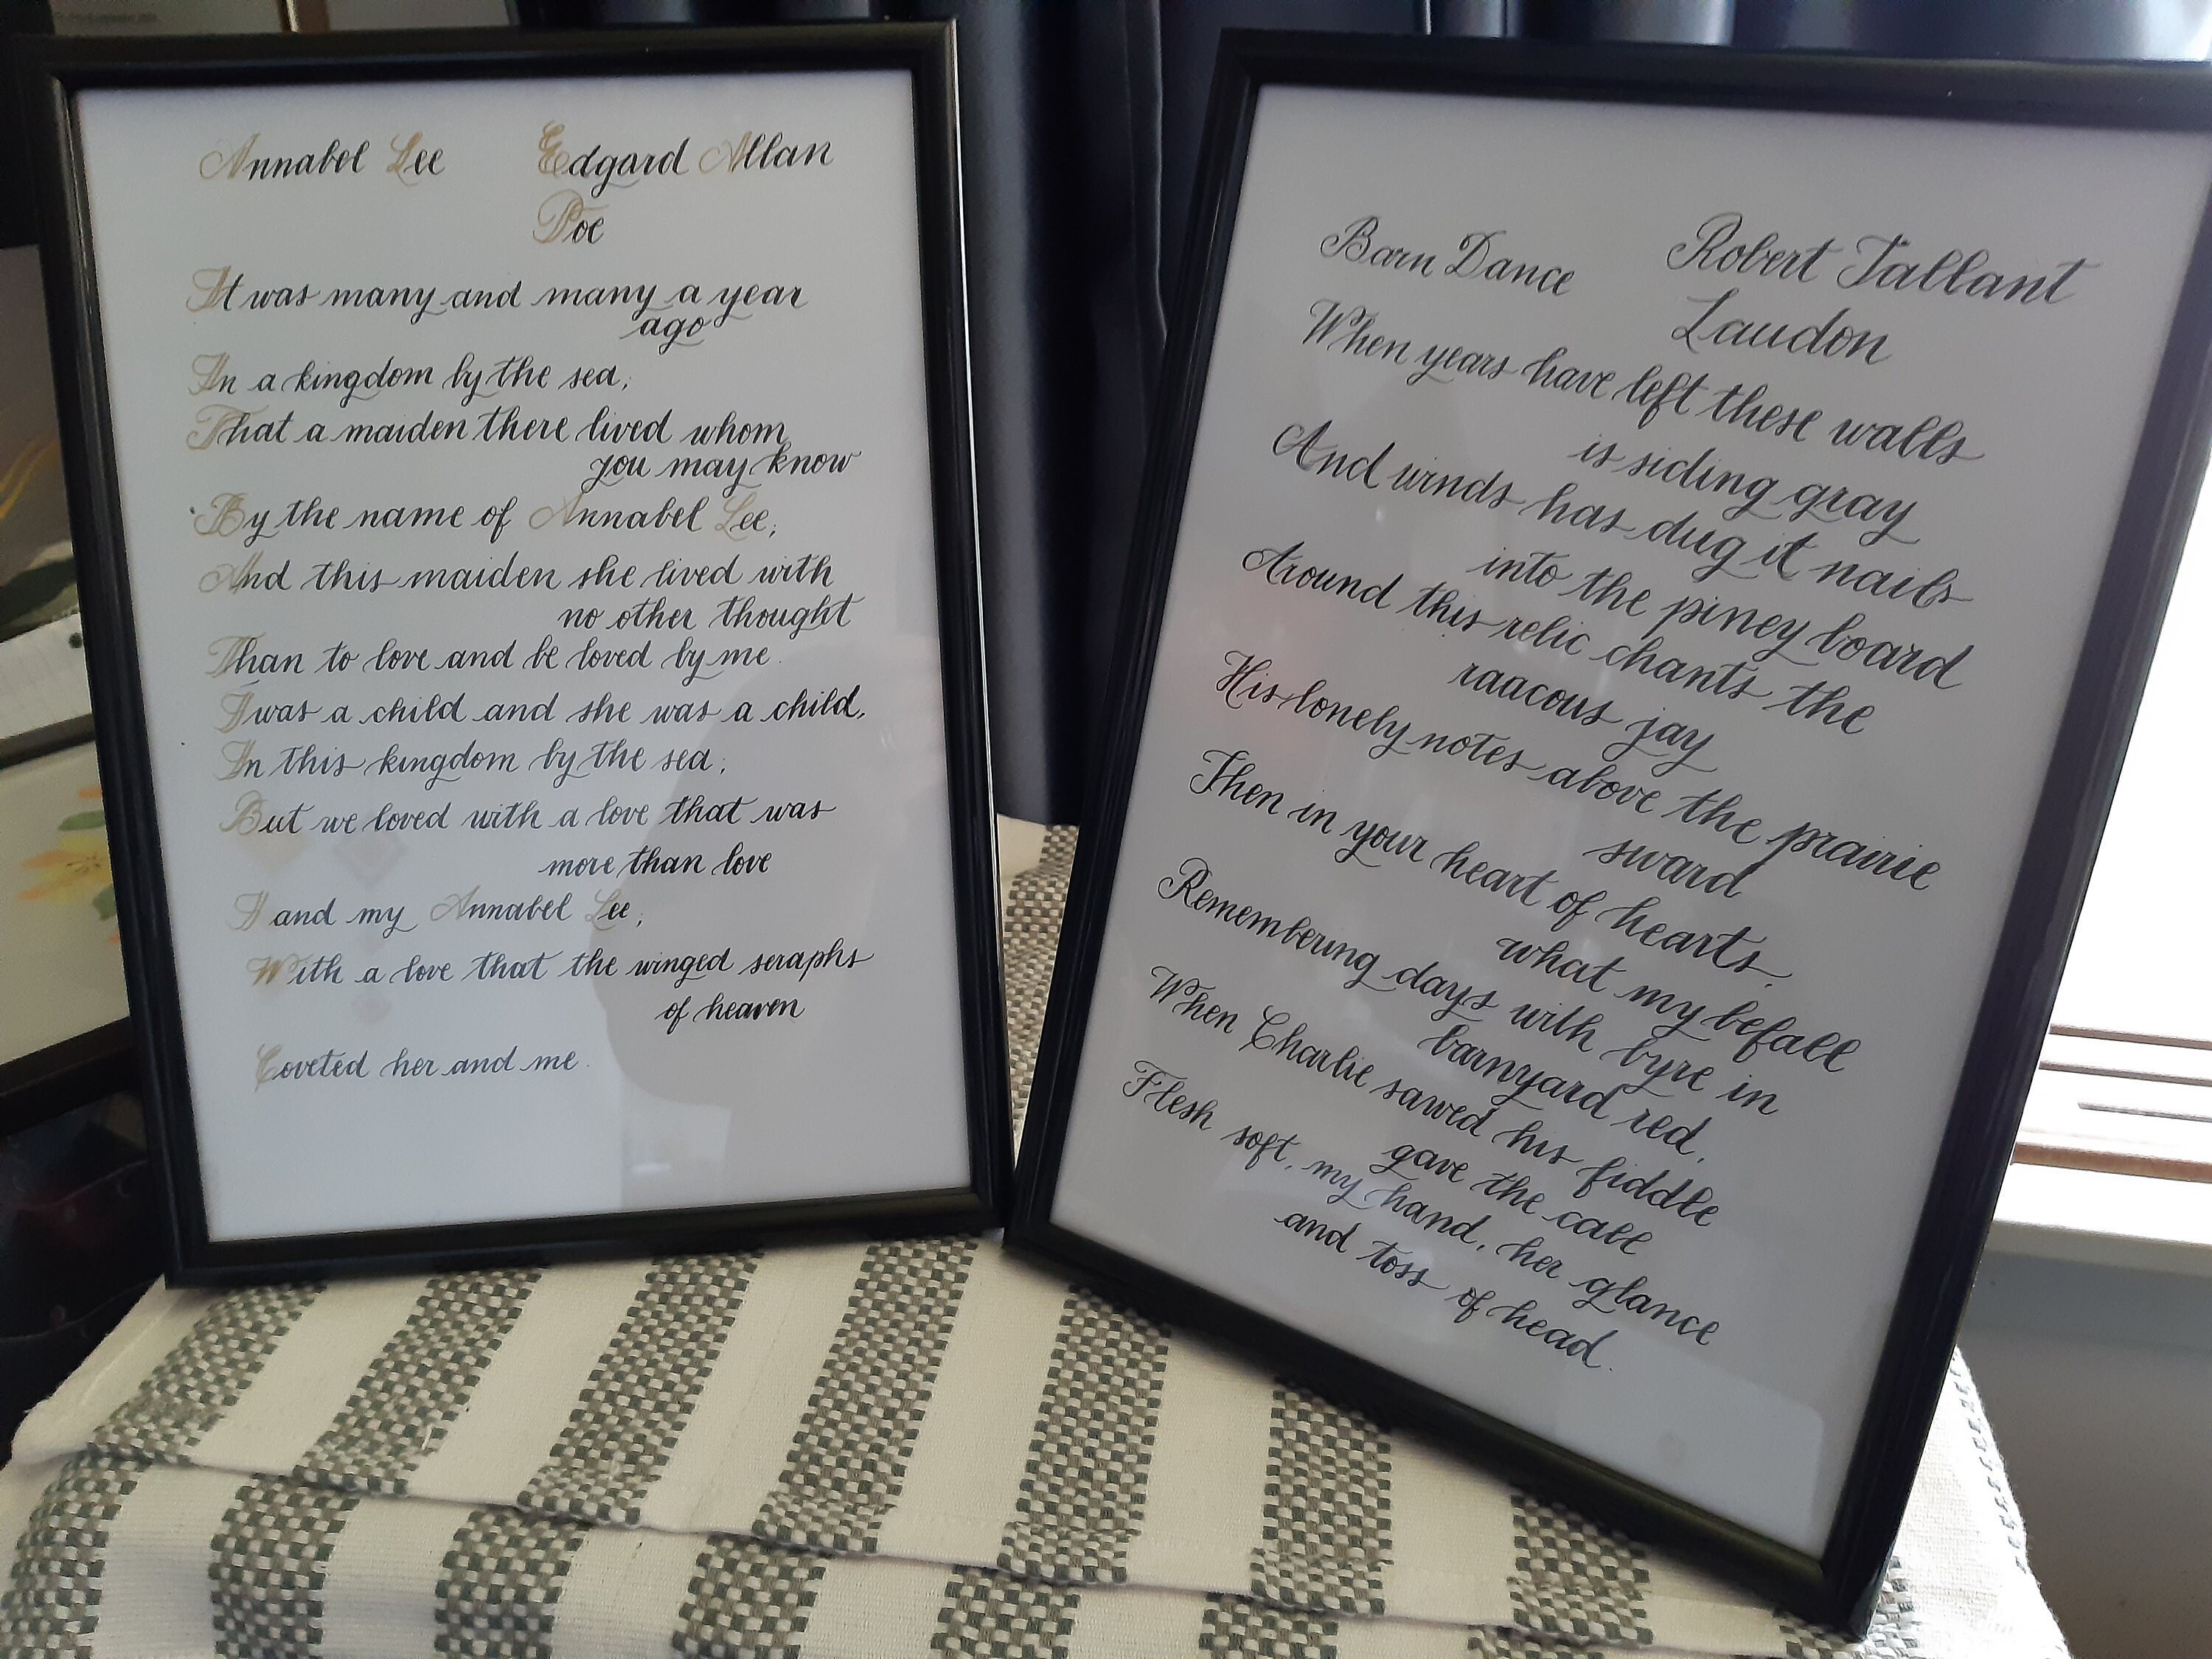 Annabel Lee Edgard Allan
Poe
It was many and many a year
ago
In a kingdom by the sea,
That a maiden there lived whom
you may know
By the name of Annabel Lee;
And this maiden she lived with
no other thought
Than to love and be loved by me.
I was a child and she was a child,
In this kingdom by the sea;
But we loved with a love that was
more than love
I and my Annabel Lee;
With a love that the winged seraphs
of heaven
Coveted her and me.
Barn Dance Robert Tallant
Laudon
When years have left these walls
is siding gray
And winds has dug it nails
into the piney board
Around this relic chants the
raacous jay
His lonely notes above the prairie
sward
Then in your heart of hearts,
what my befall
Remembering days with byre in
barnyard red,
When Charlie sawed his fiddle
gave the call
Flesh soft, my hand, her glance
and toss of head.